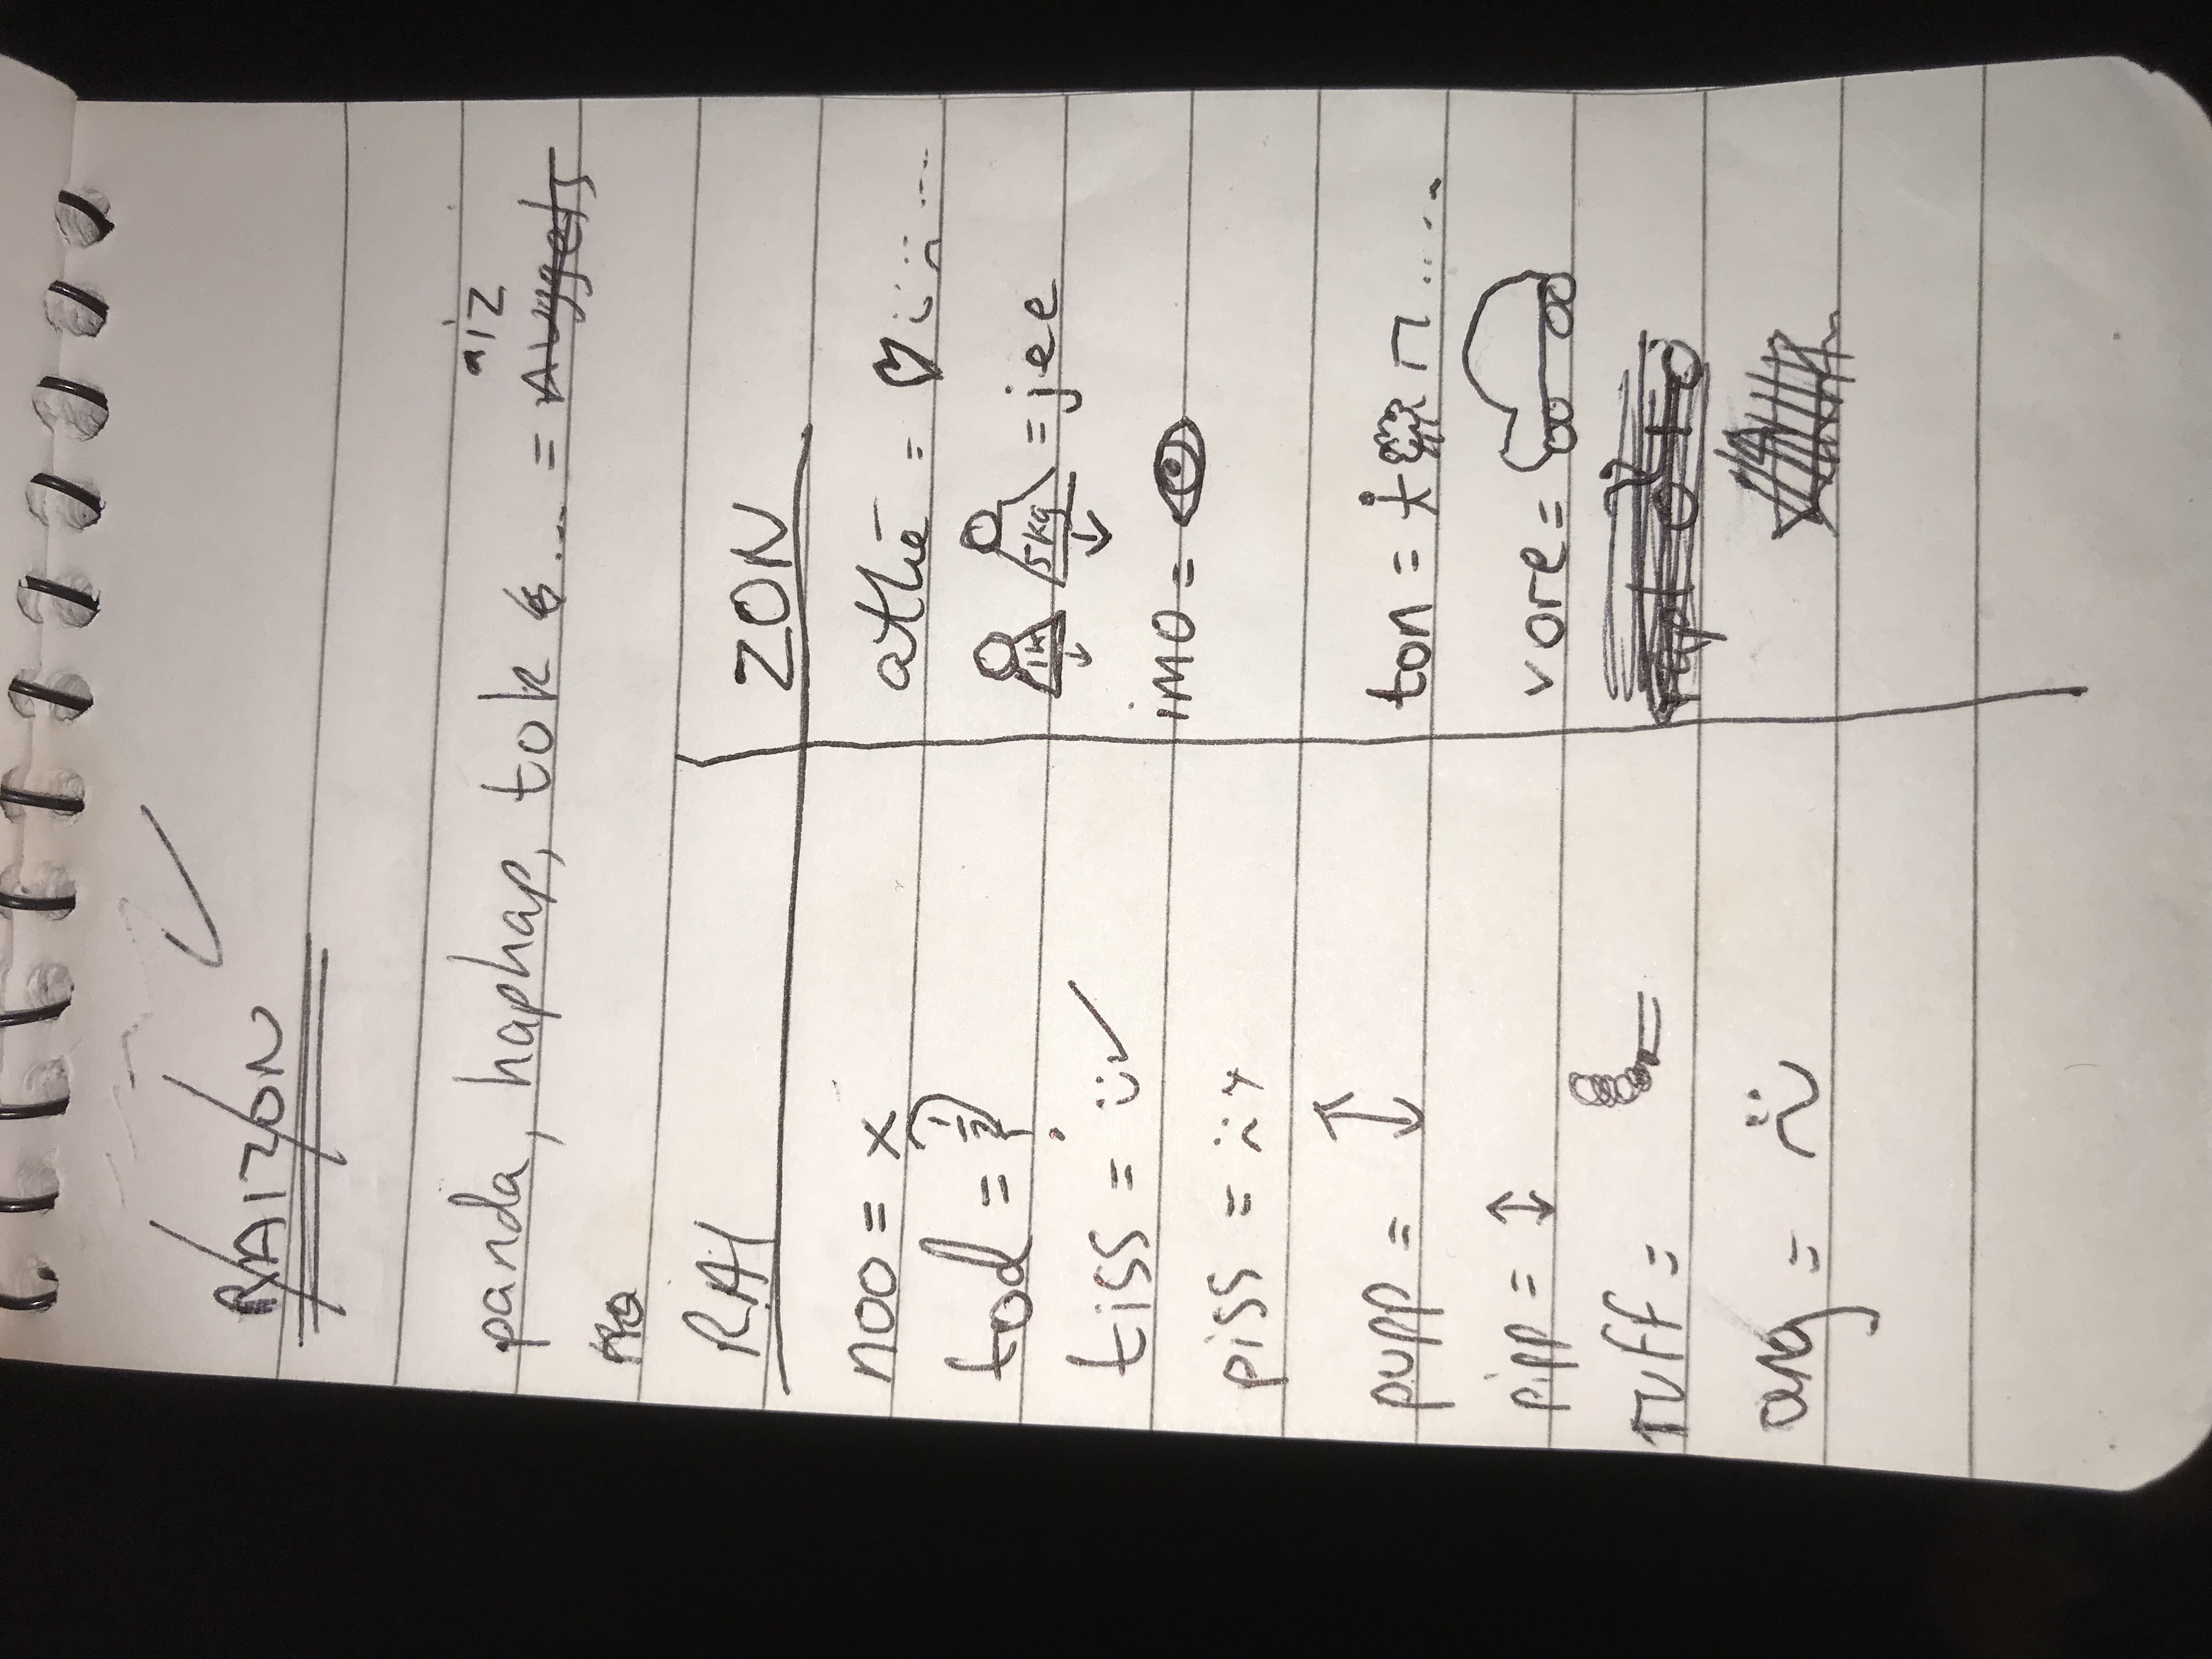 R/AIZ/ON
aiz
panda, haphap, tok ... = Nuggets
RAI
noo = x
tod =
tiss =
piss =
pupp =
pipp =
ruff =
ang =
ZON
athē =
1k 5kg = jee
imo =
ton =
vore =